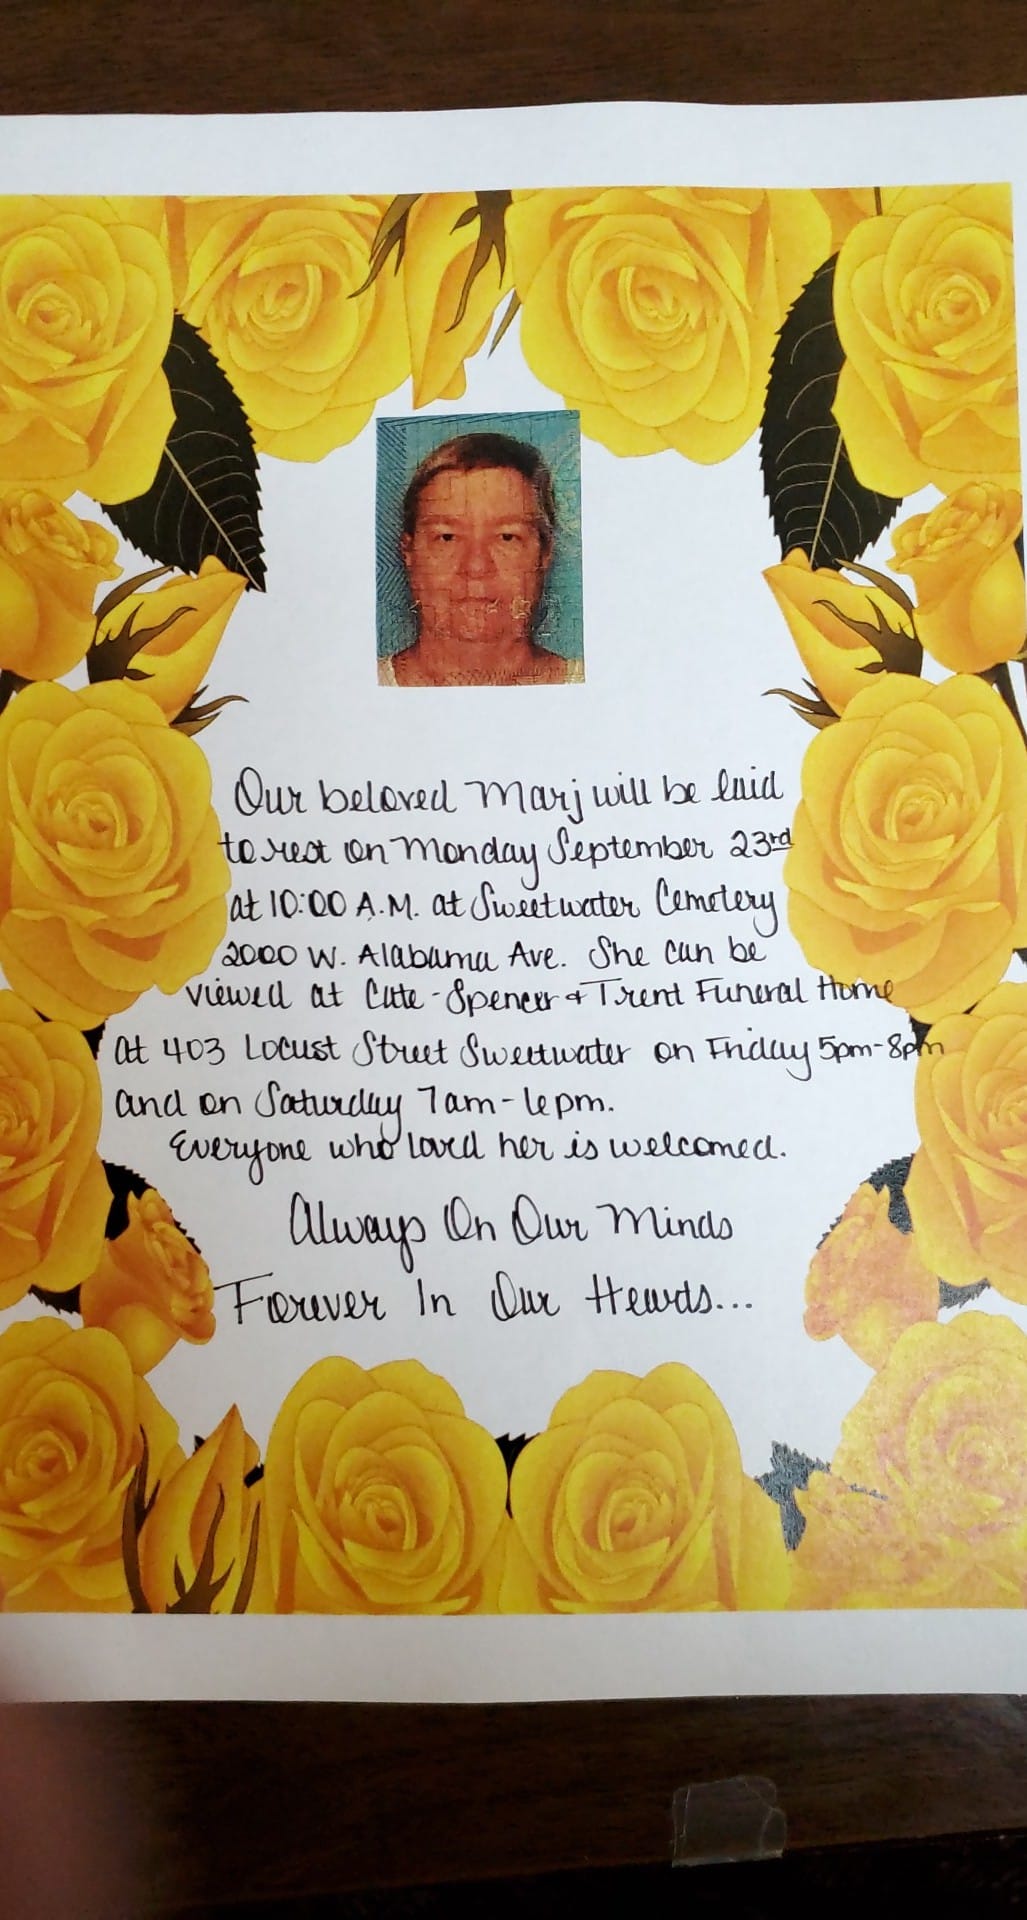 Our beloved Marj will be laid
to rest on Monday September 23rd
at 10:00 A.M. at Sweetwater Cemetery
2000 W. Alabama Ave. She can be
viewed at Cate-Spencer & Trent Funeral Home
at 403 Locust Street Sweetwater on Friday 5pm-8pm
and on Saturday 7am-6pm.
Everyone who loved her is welcomed.
Always On Our Minds
Forever In Our Hearts...